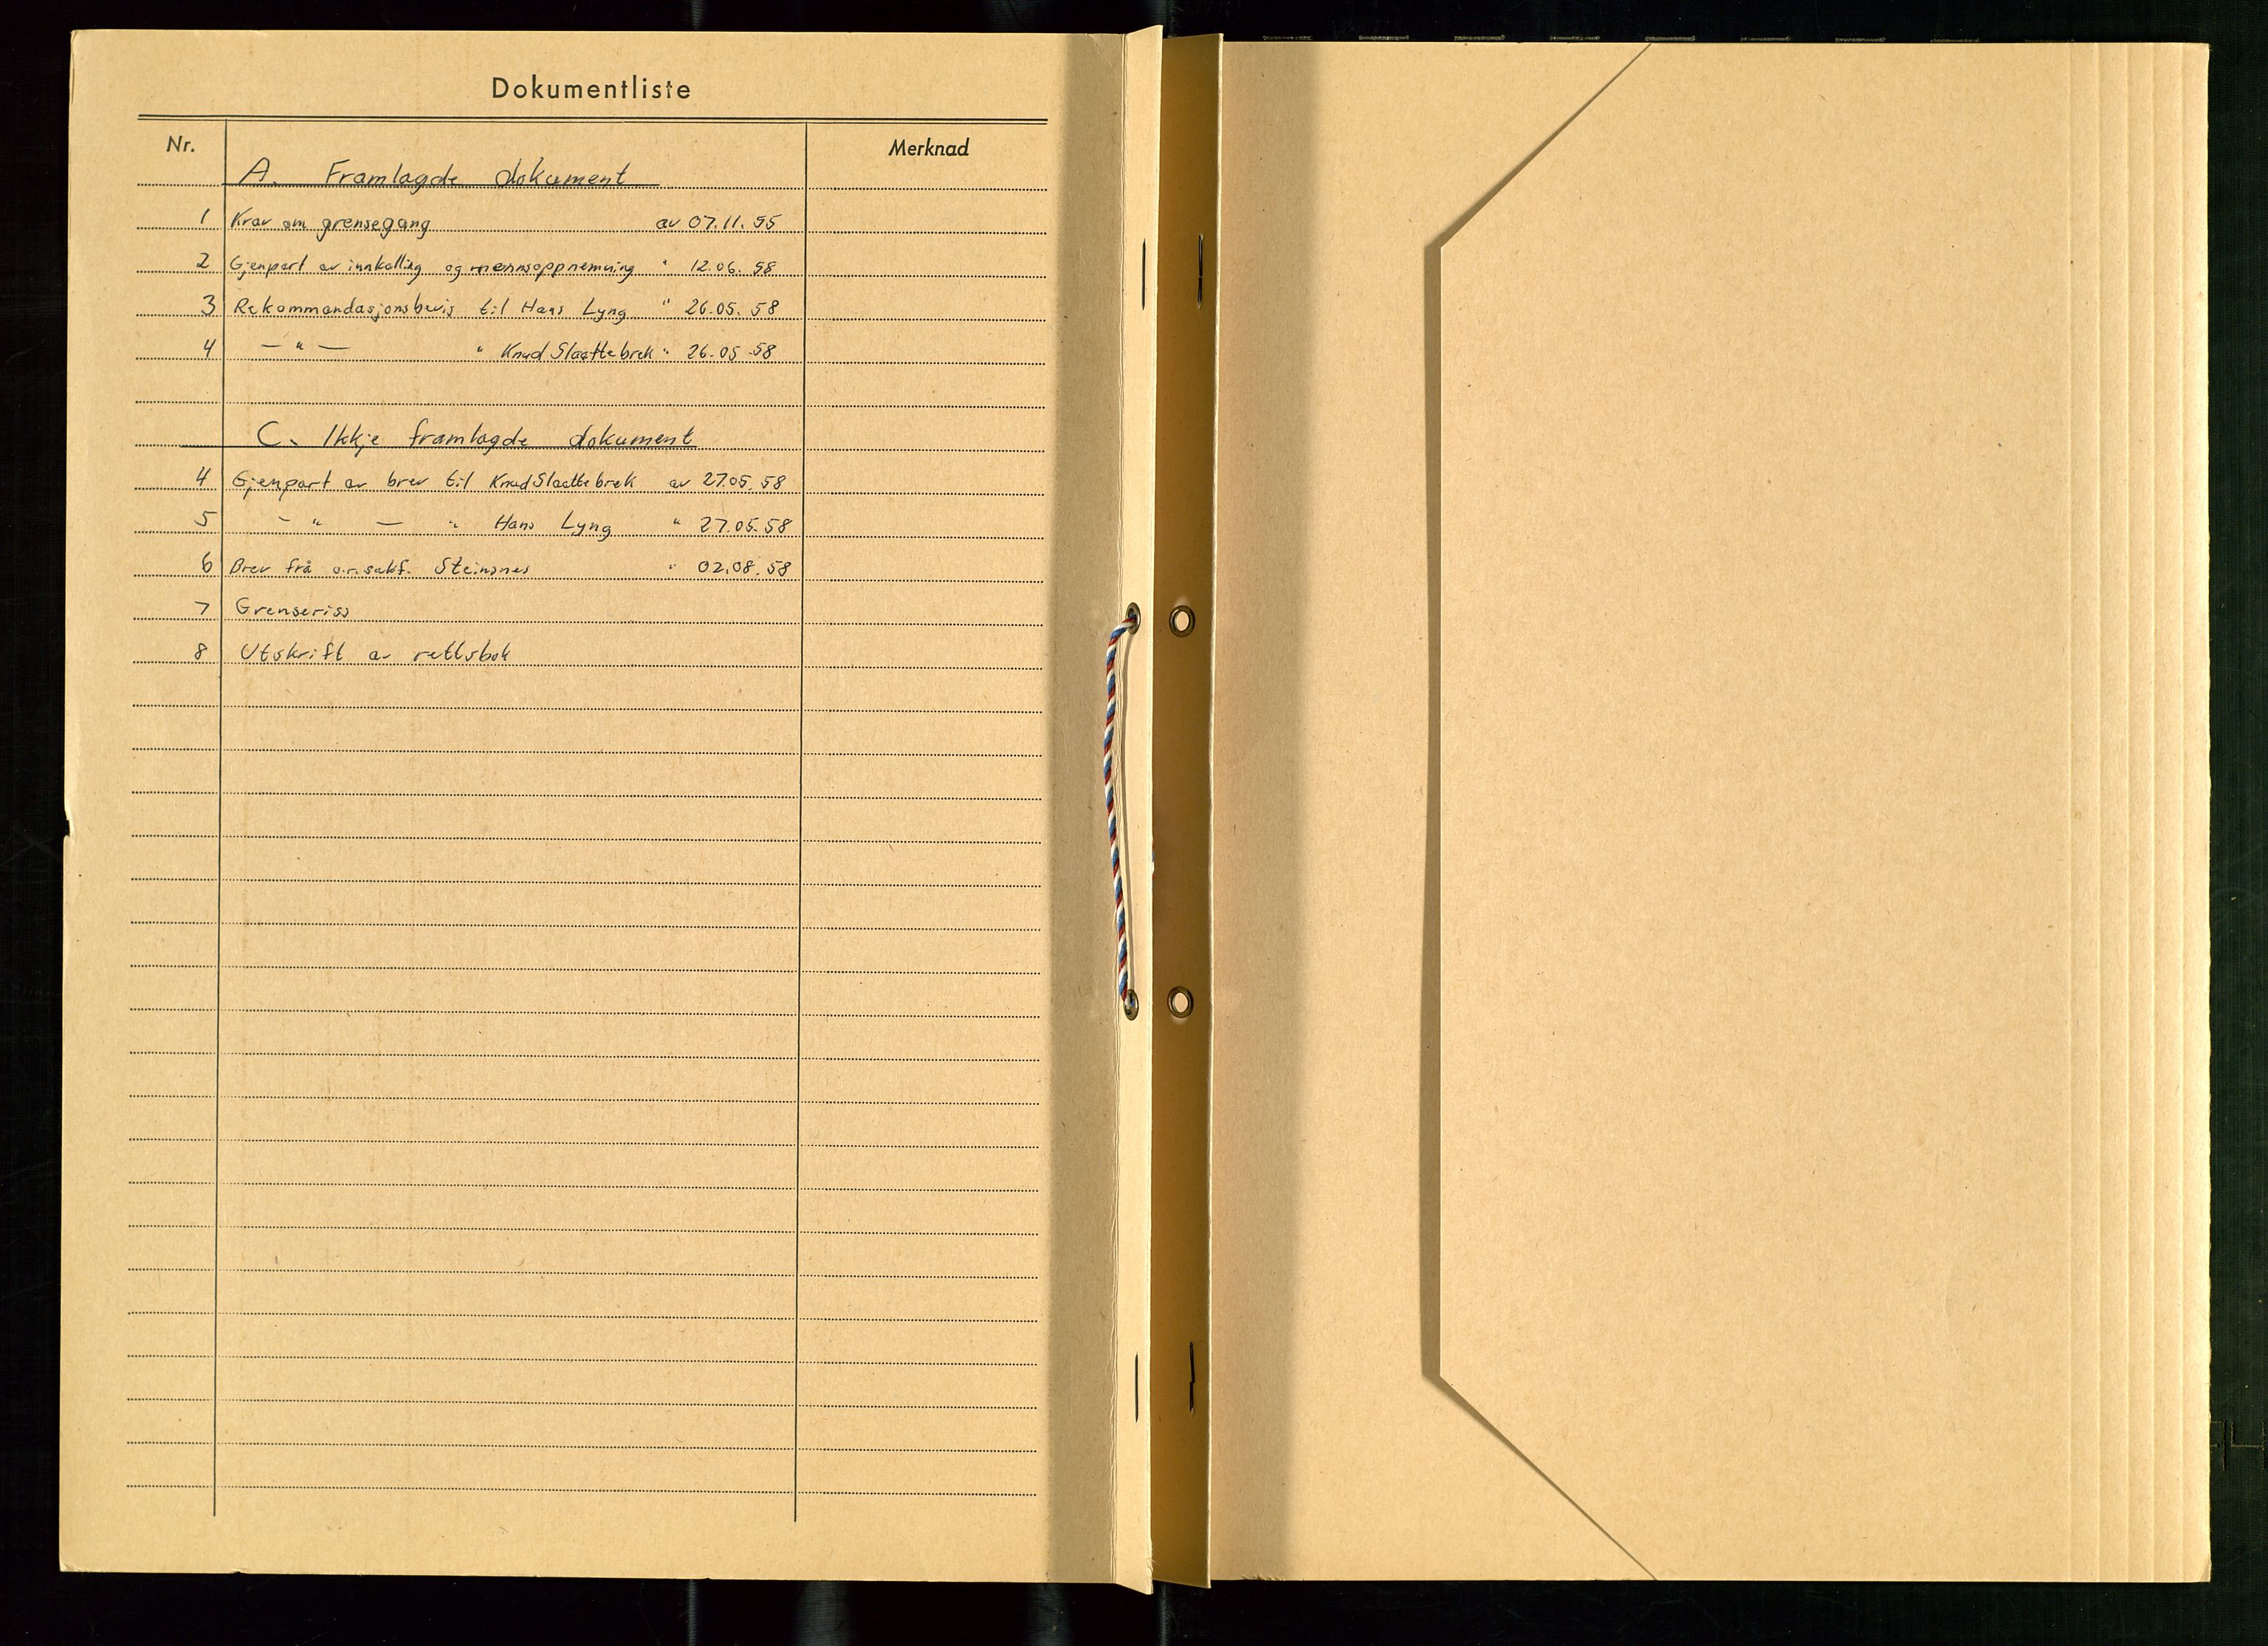 Dokumentliste
Nr. Merknad
A. Framlagde dokument
1 Krav om grensegang av 07.11.55
2 Gjenpart av innkalling og mennsoppnemning " 12.06.58
3 Rekommandasjonsbevis til Hans Lyng " 26.05.58
4 — " — " Knud Slaattebrek " 26.05.58
C. Ikkje framlagde dokument
4 Gjenpart av brev til Knud Slaattebrek av 27.05.58
5 - " — " Hans Lyng " 27.05.58
6 Brev frå o.r.sakf. Steinsnes " 02.08.58
7 Grenseriss
8 Utskrift av rettsbok